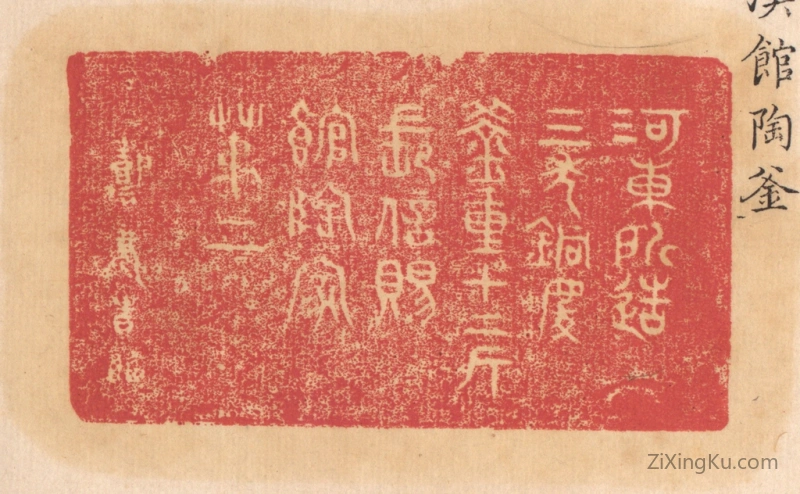 漢館陶釜
河東所造
三斗銅慶
釜重十二斤
長信賜
館陶家
第二
ZiXingKu.com